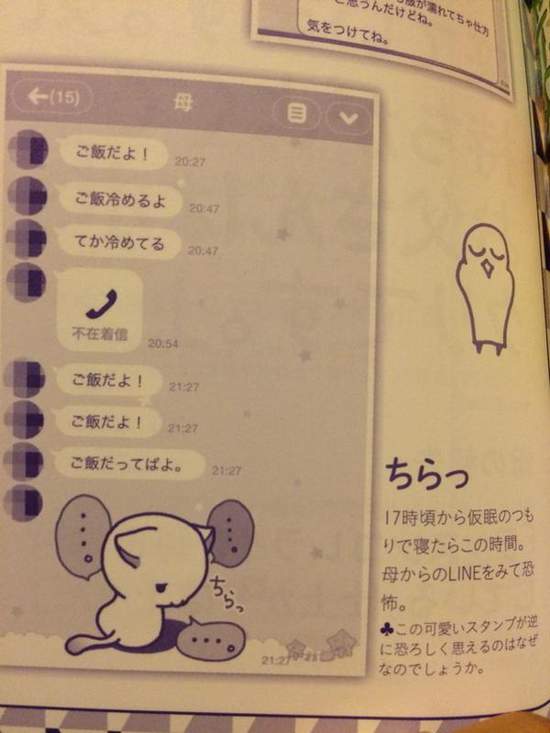 と思うんだけどね。
気をつけてね。
←(15)
母
ご飯だよ！
20:27
ご飯冷めるよ
20:47
てか冷めてる
20:47
不在着信
20:54
ご飯だよ！
21:27
ご飯だよ！
21:27
ご飯だってばよ。
21:27
ちらっ
21:27
ちらっ
17時頃から仮眠のつも
りで寝たらこの時間。
母からのLINEをみて恐
怖。
♣この可愛いスタンプが逆
に恐ろしく思えるのはなぜ
なのでしょうか。